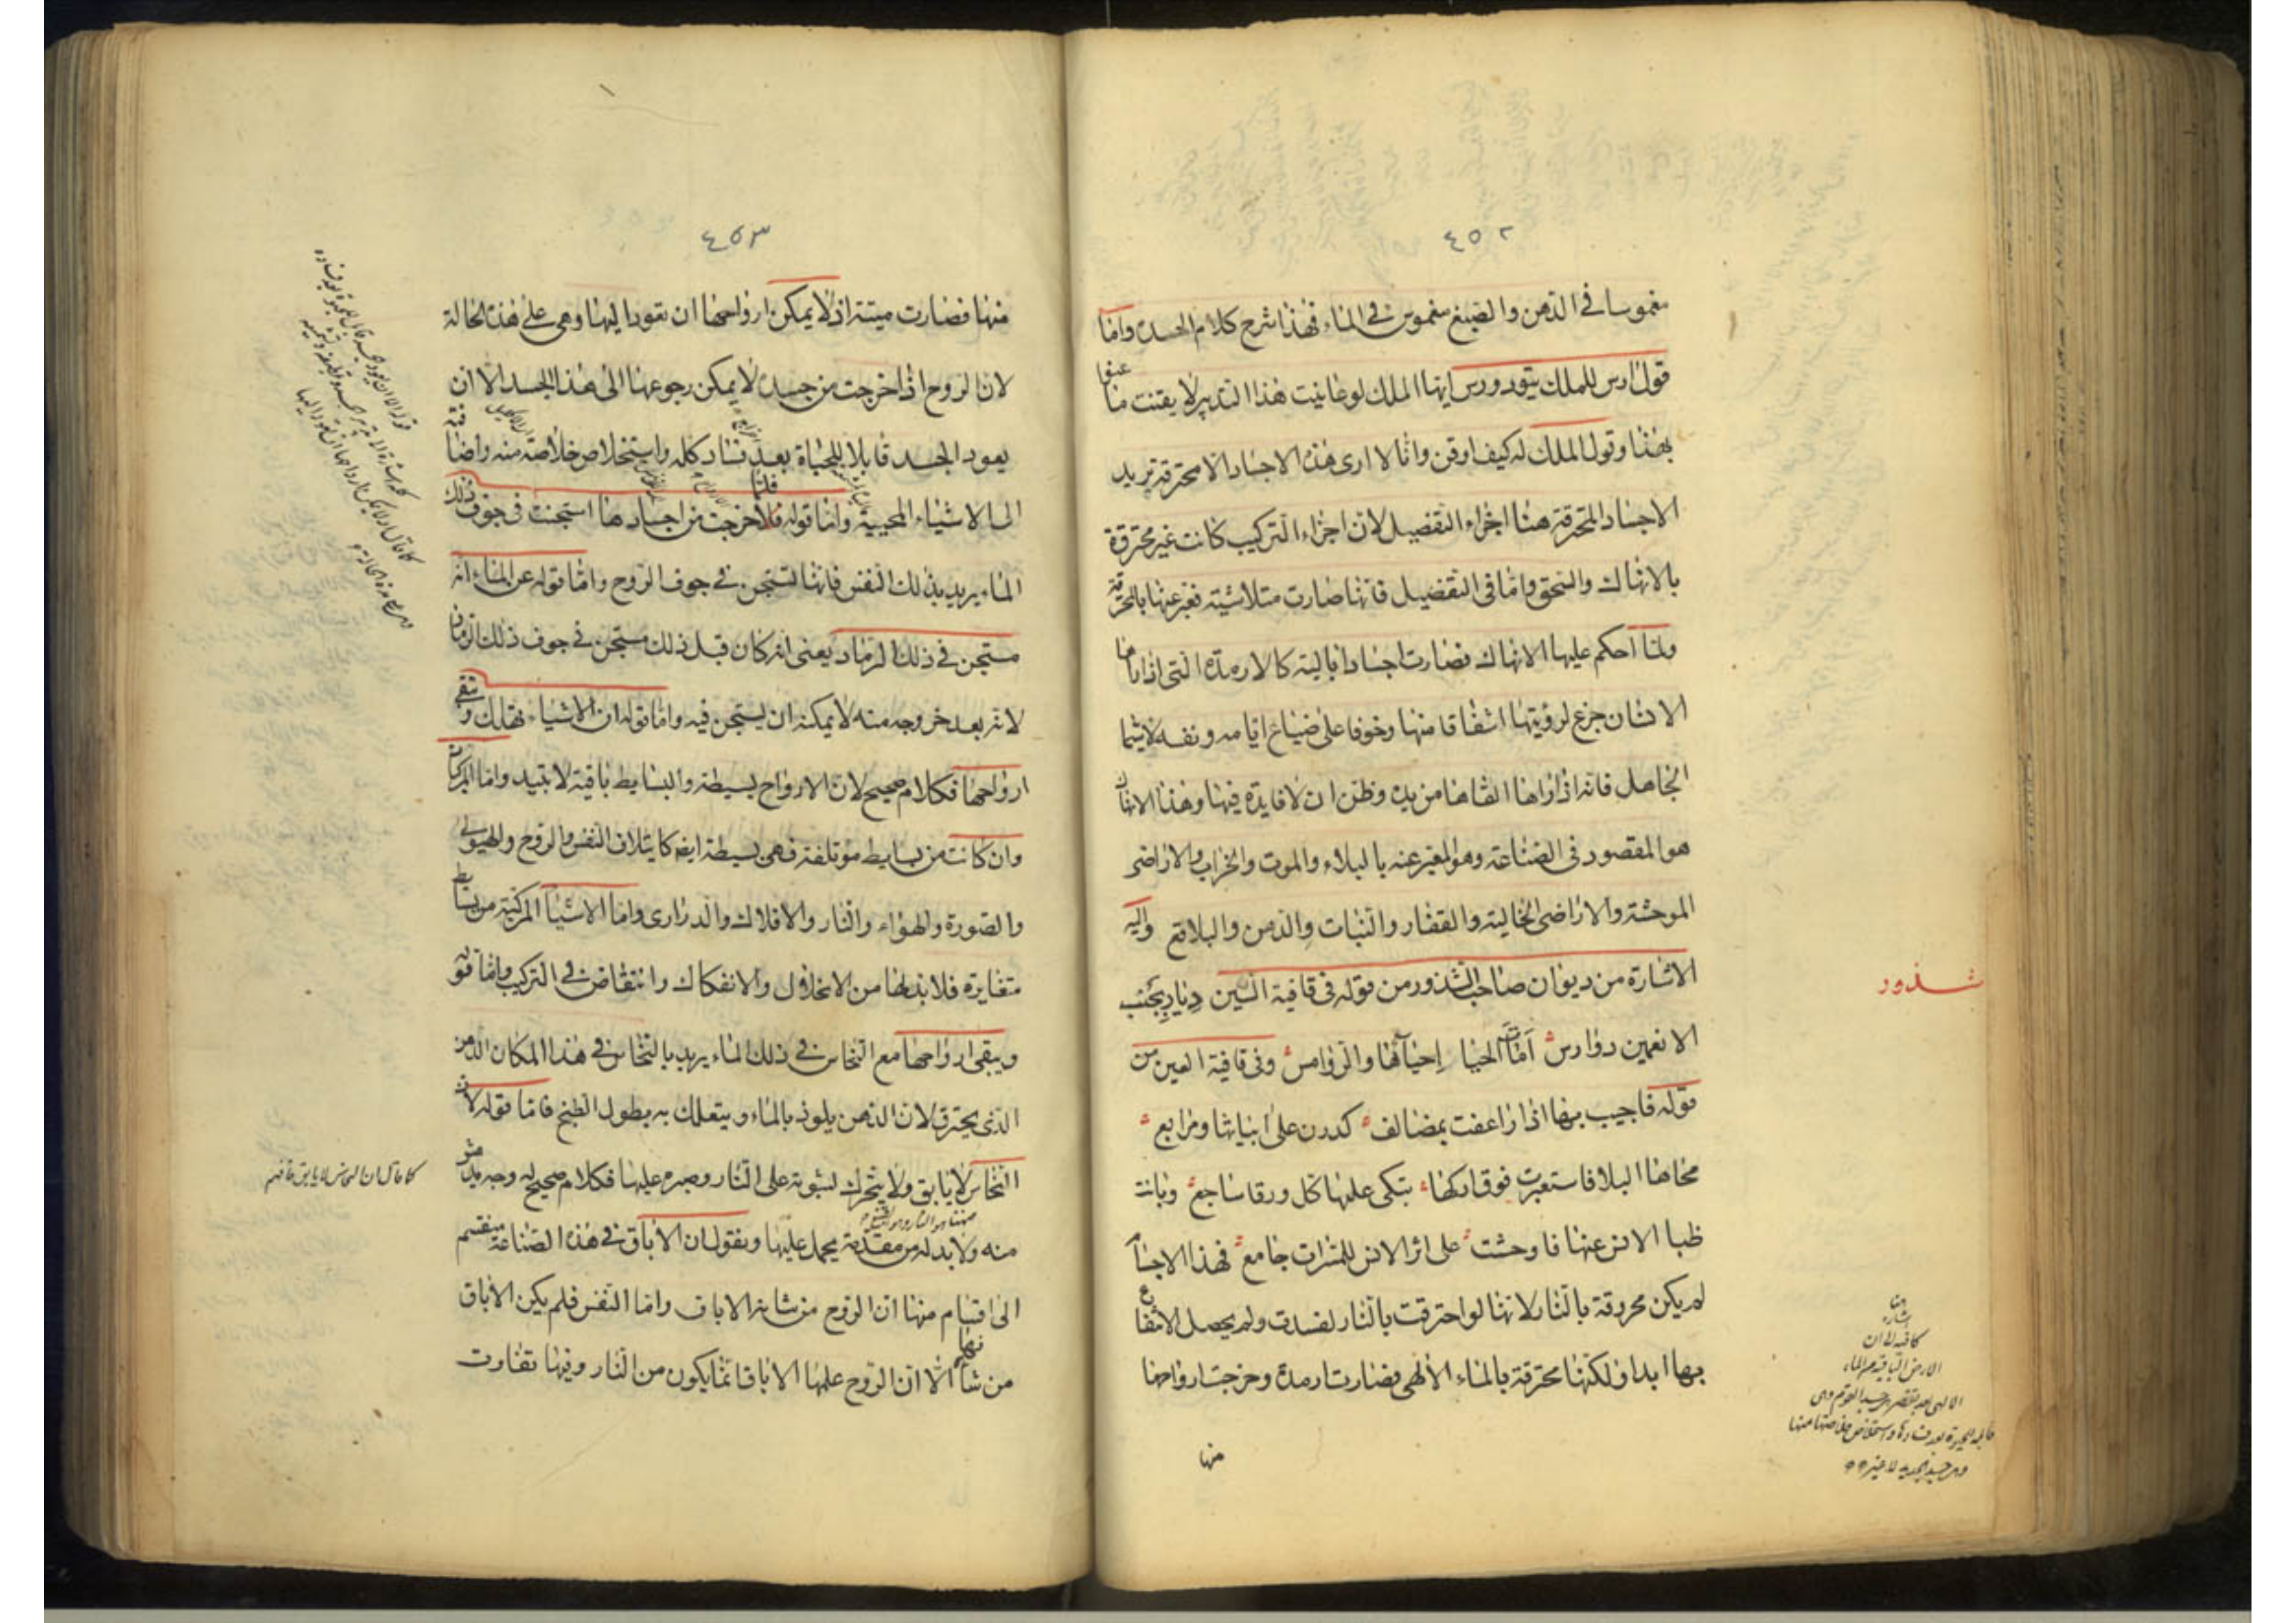 ٤٥٢
مغموسا في الدهن والصبغ مغموس في الماء فهذا شرح كلام الجسد واما
قول ارس للملك تيودورس ايها الملك لو عاينت هذا التدبير لا يقنت ما
بهذا وقول الملك له كيف اوقن وانا لا ارى هذه الاجساد الا محترقة يريد
الاجساد المحترقة هنا اجزاء التفصيل لان اجزاء التركيب كانت غير محترقة
بالانهاك والسحق واما في التفصيل فانها صارت متلاشية فعبر عنها بالمحترقة
ولما احكم عليها الانهاك فصارت اجسادا بالية كالارمدة التي اذا راها
الانسان جزع لرؤيتها اشفاقا منها وخوفا على ضياع ايامه ونفسه لاسيما
الجاهل فانه اذا راها القاها من يده وظن ان لا فايدة فيها وهذا الانهاك
هو المقصود في الصناعة وهو المعبر عنه بالبلاء والموت والخراب والاراضي
الموحشة والاراضي الخالية والقفار والنبات والدمن والبلاقع واليه
الاشارة من ديوان صاحب الشذور من قوله في قافية السين ديار بجنب
الانعمين دوارس امات الحيا احياها والروامس وفي قافية العين من
قوله فاجيب بها اذا راعفت بمضالف كدرن على ابنياتها ومرابع
محاها البلا فاستعبرت فوق اركها تبكي عليها كل ورقا ساجع وبانت
ظبا الانس عنها فاوحشت على اثر الانس للمسرات جامع فهذا الاجسام
لم يكن محروقة بالنار لانها لو احترقت بالنار لفسدت ولم يحصل الانتفاع
بها ابدا ولكنها محترقة بالماء الالهي فصارت ارمدة وخرجت ارواحها
منها
شذور
كافيه لان
الارض الباقية من الماء
٤٥٣
منها فصارت ميتة اذ لا يمكن ارواحها ان تعود اليها وهي على هذه الحالة
لان الروح اذا خرجت من جسد لا يمكن رجوعها الى هذا الجسد الا ان
يعود الجسد قابلا للحياة بعد فساد كله واستخلاص خلاصة منه واضافته
الى الاشياء المحيية واما قوله فلما خرجت من اجسادها استجنت في جوف ذلك
الماء يريد بذلك النفس فانها تستجن في جوف الروح واما قوله عن الماء انه
مستجن في ذلك الرماد يعني انه كان قبل ذلك مستجن في جوف ذلك الرماد
لانه بعد خروجه منه لا يمكنه ان يستجن فيه واما قوله ان الاشياء تهلك وتبقى
ارواحها فكلام صحيح لان الارواح بسيطة والبسايط باقية لا تبيد واما المركبات
وان كانت من بسايط موتلفة فهي بسيطة ايضا كايتلاف النفس والروح والهيولى
والصورة والهواء والنار والافلاك والدرارى واما الاشيا المركبة من بسايط
متغايرة فلا بد لها من الانحلال والانفكاك وانتقاض في التركيب واما قوله
ويبقى ارواحها مع النحاس في ذلك الماء يريد بالنحاس في هذا المكان الدهن
الذي يحترق لان الدهن يلوذ بالماء ويتعلك به بطول الطبخ فاما قوله لان
النحاس لا يابق ولا يتحرك لثبوته على النار وصبره عليها فكلام صحيح له وجه
منه ولا بد له من مقدمة يحمل عليها ونقول ان الاباق في هذه الصناعة منقسم
الى اقسام منها ان الروح من شانه الاباق واما النفس فلم يكن الاباق
من شانها الا ان الروح علمها الاباق انما يكون من النار وفيها تفاوت
كما قال ان النحاس لا يابق فافهم